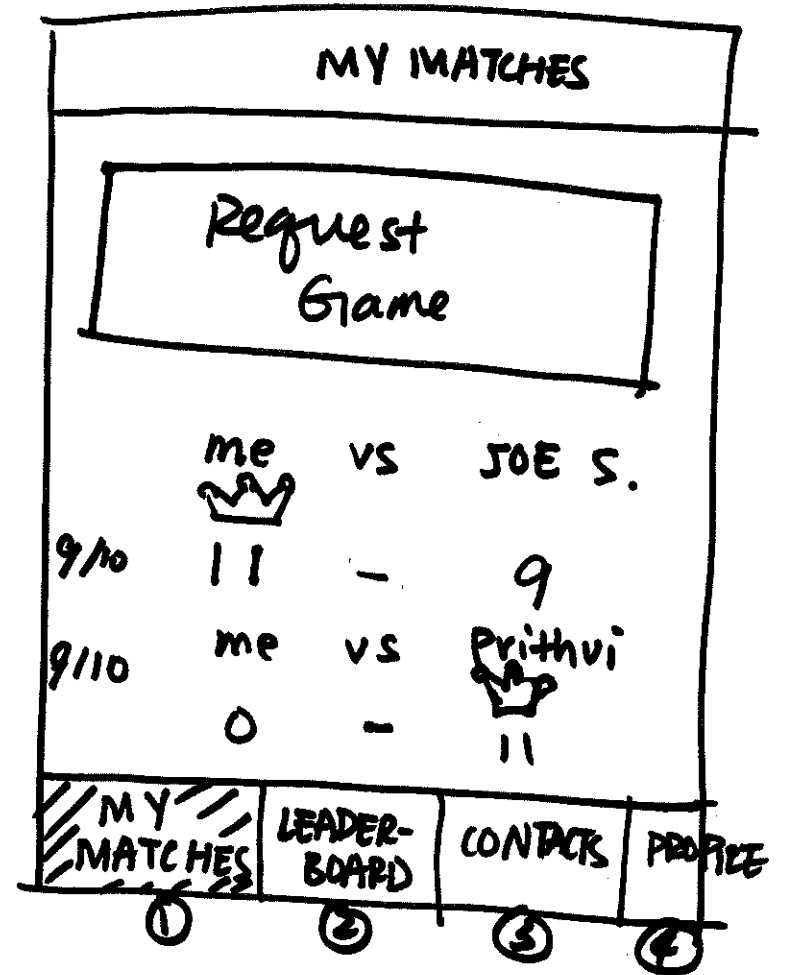 MY MATCHES
Request
Game
me vs JOE S.
9/10 11 - 9
9/10 me vs Prithvi
0 - 11
MY MATCHES
LEADER-
BOARD
CONTACTS
PROFILE
1 2 3 4